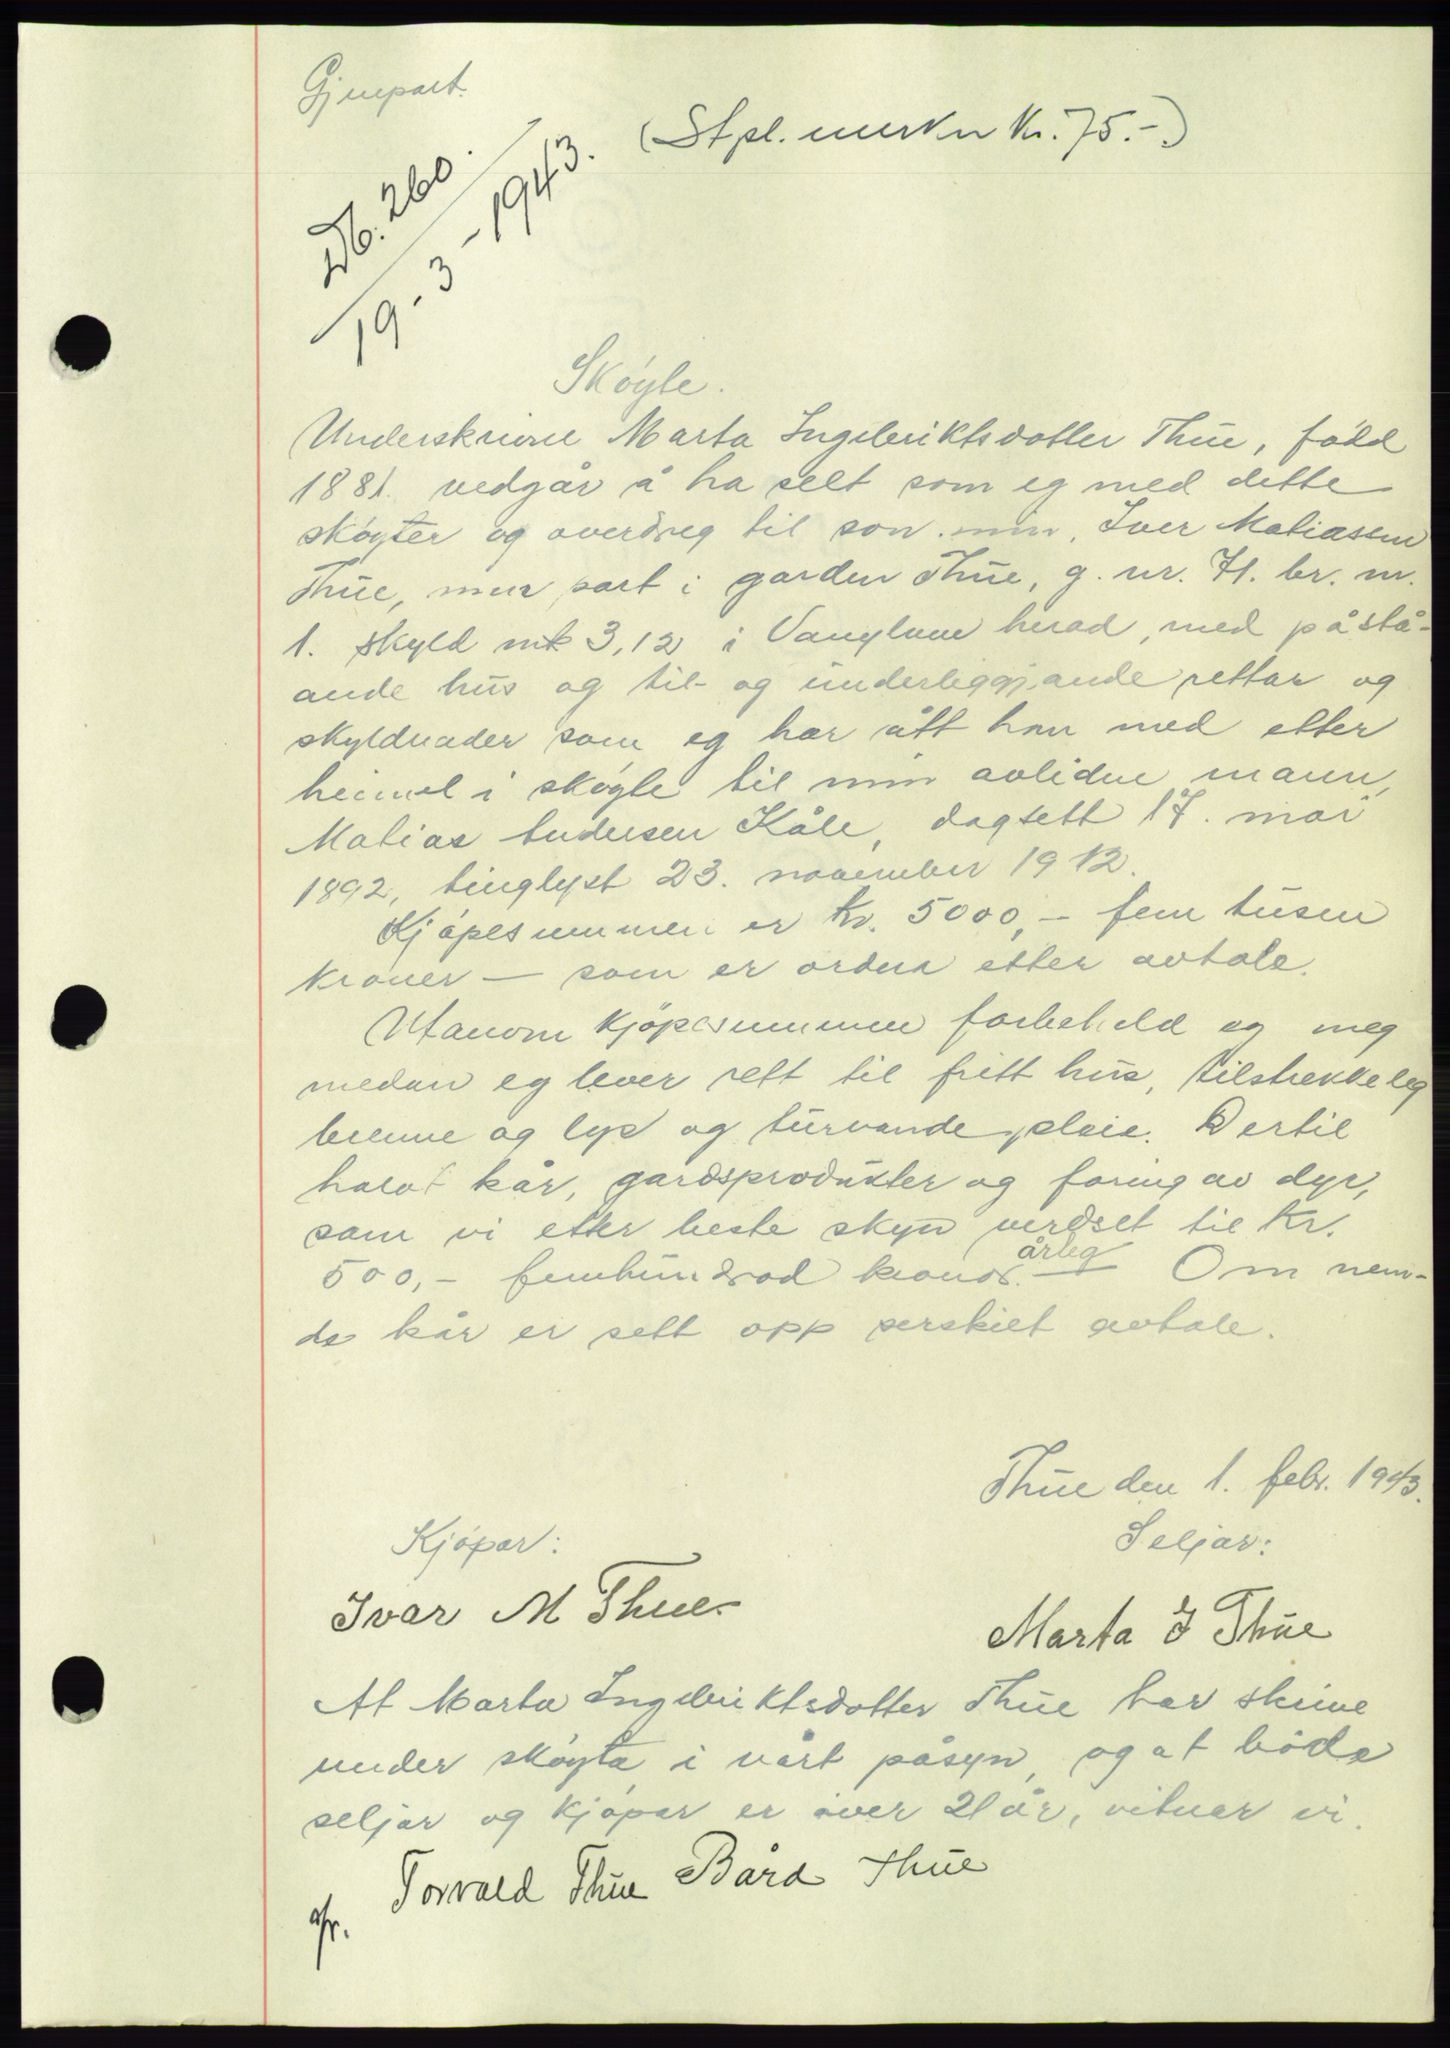 Gjenpart.
(Stpl. merker Kr. 75.-.)
Db. 260.
19-3-1943.
Skøyte.
Underskrivne Marta Ingebriktsdotter Thüe, født
1881. vedgår å ha selt som eg med dette
skøyter og overdreg til son min, Iver Matiassen
Thüe, min part i garden Thüe, g. nr. 71. br. nr.
1. skyld mk 3,12 i Vangлuu herad, med påstå-
ande hüs og til- og ünderliggjande rettar og
skyldnader som eg har ått han med etter
heimel i skøyte til min avlidne mann,
Matias Andersen Kåle, dagsett 17. mai
1892, tinglyst 23. november 1912.
Kjøpesummen er Kr. 5000,- fem tüsen
kroner — som er ordna etter avtale.
Utanom kjøpesummen forbeheld eg meg
medan eg lever rett til fritt hüs, tilstrekkeleg
brenne og lys og türvande pleie. Dertil
halvt kår, gardsprodükter og foring av dyr,
som vi etter beste skyn verdset til Kr.
500,- femhündrad kroner. årleg Om nem-
de kår er sett opp serskilt avtale.
Thüe den 1. febr. 1943.
Kjøpar:
Seljar:
Ivar M Thüe
Marta I Thüe
At Marta Ingebriktsdotter Thüe har skrive
under skøyta i vårt påsyn, og at både
seljar og kjøpar er over 21 år, vitnar vi.
Torvald Thüe Bård Thüe